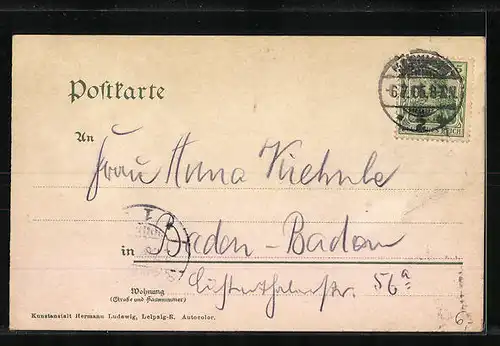 Postkarte
6.7.06. 8-9 N.
5
REICH
An
Frau Anna Kiehnle
in Baden-Baden
Lichtenthalerstr. 56a
Wohnung
(Straße und Hausnummer)
Kunstanstalt Hermann Ludewig, Leipzig-R. Autocolor.